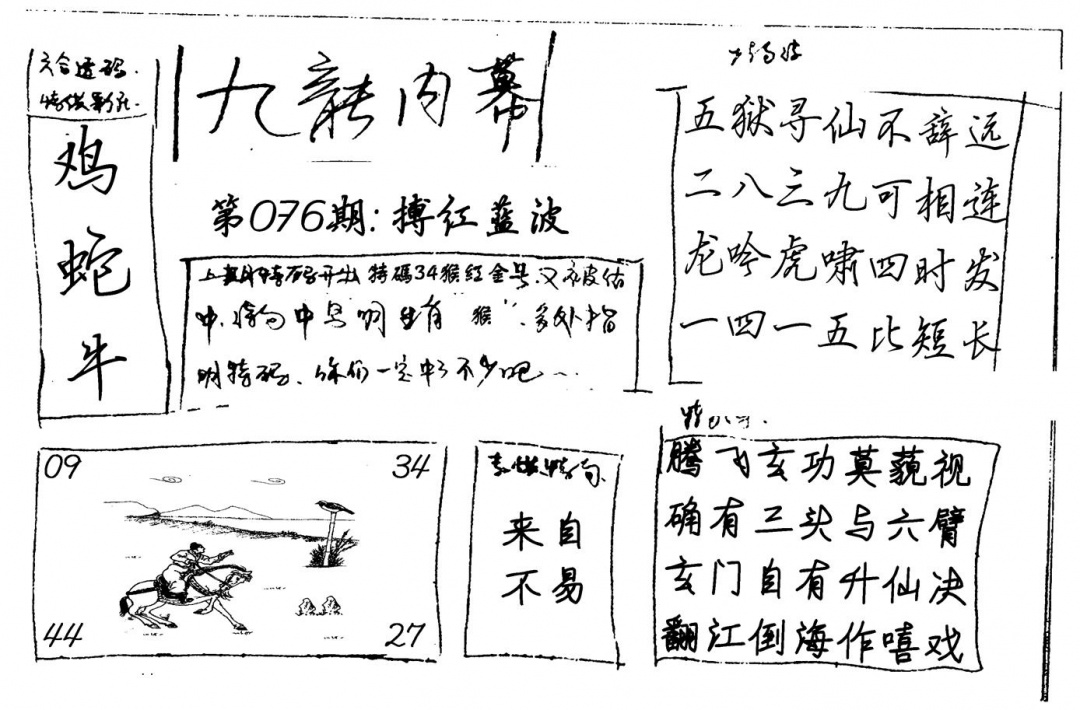 六合透码
鸡
蛇
牛
九龍内幕
第076期:搏红蓝波
上期特码开出特碼34猴红金号又被估
中 中 有"猴" 多处指
明特码、你们一定中了不少吧
五狱寻仙不辞远
二八三九可相连
龙吟虎啸四时发
一四一五比短长
09
34
44
27
来自
不易
腾飞玄功莫藐视
确有三头与六臂
玄门自有升仙决
翻江倒海作嘻戏